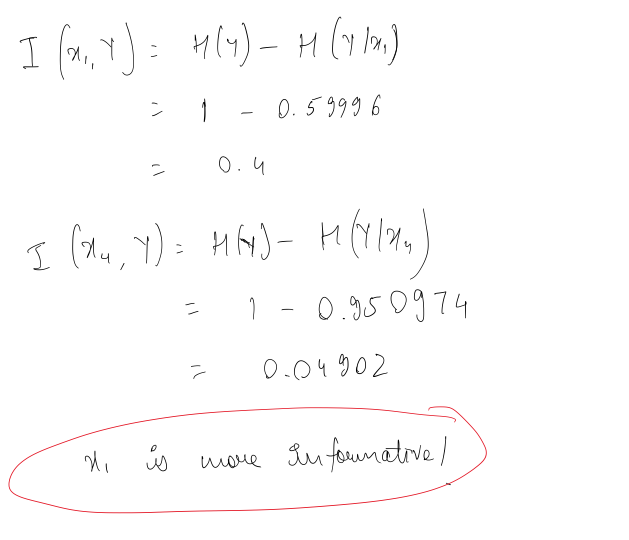 I (x₁, Y) = H(Y) - H(Y/x₁)
= 1 - 0.59996
= 0.4
I (x₄, Y) = H(Y) - H(Y/x₄)
= 1 - 0.950974
= 0.04902
x₁ is more Informative/